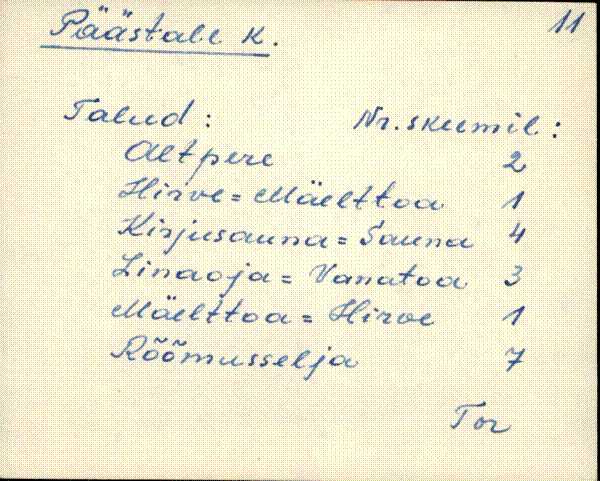 Päästale k. 11
Talud: Nr. skeemil:
Altpere 2
Hirve = Mäelttoa 1
Kirjusauna = Sauna 4
Linaoja = Vanatoa 3
Mäelttoa = Hirve 1
Rõõmusselja 7
Tor